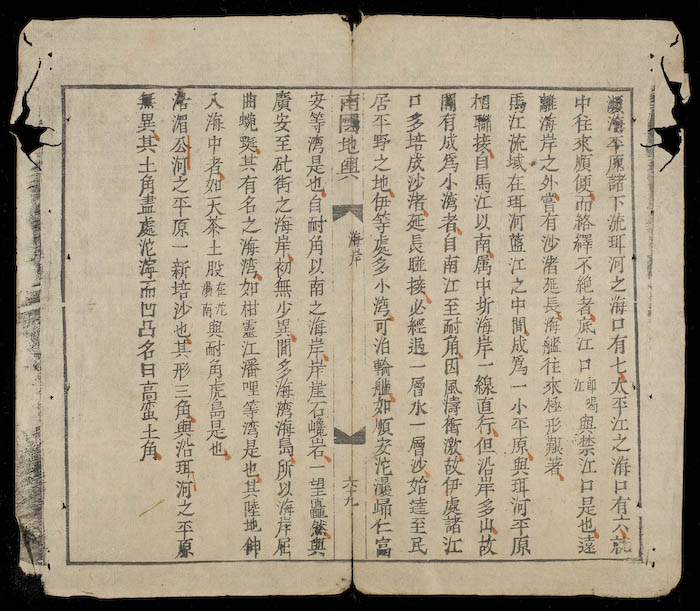 瀕海平原諸下流珥河之海口有七太平江之海口有六就
中往來順便而絡繹不絕者底江口與禁江口是也遠
離海岸之外嘗有沙渚延長海艦往來極形艱著
馬江流域在珥河藍江之中間成爲一小平原與珥河平原
相聯接自馬江以南属中圻海岸一線直行但沿岸多山故
閒有成爲小湾者自南江至耐角因風濤衝激故伊處諸江
口多培成沙渚延長睚接必經過一層水一層沙始達至民
居平野之地伊等處多小湾可泊輪艦如順安沱瀼歸仁富
南國地輿
海岸
六十九
安等湾是也自耐角以南之海岸岸崖石巉岩一望矗然與
廣安至砒衙之海岸初無少異間多海湾海島所以海岸屈
曲蜿蜒其有名之海湾如柑靈江潘哩等湾是也其陸地伸
入海中者如天茶土股在沱瀼南與耐角虎島是也
沿湄公河之平原一新培沙也其形三角與沿珥河之平原
無異其土角盡處沱海而凹凸名曰高蛮土角